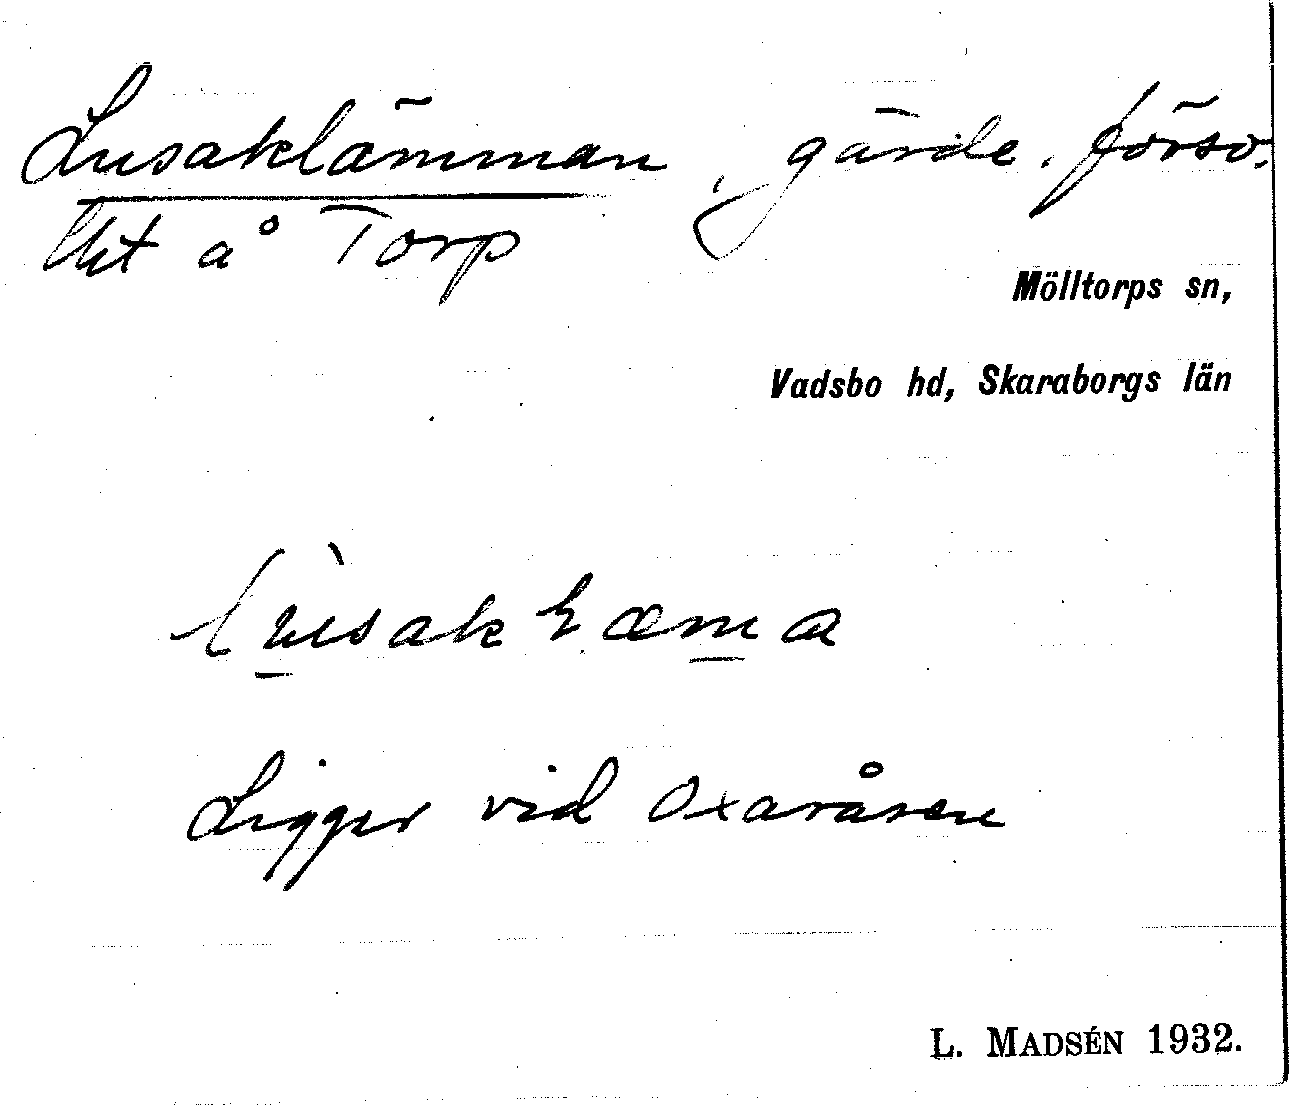 Lusaklämman, gärde. försv.
å Torp
Mölltorps sn,
Vadsbo hd, Skaraborgs län
Ligger vid Oxaråsen
L. MADSÉN 1932.